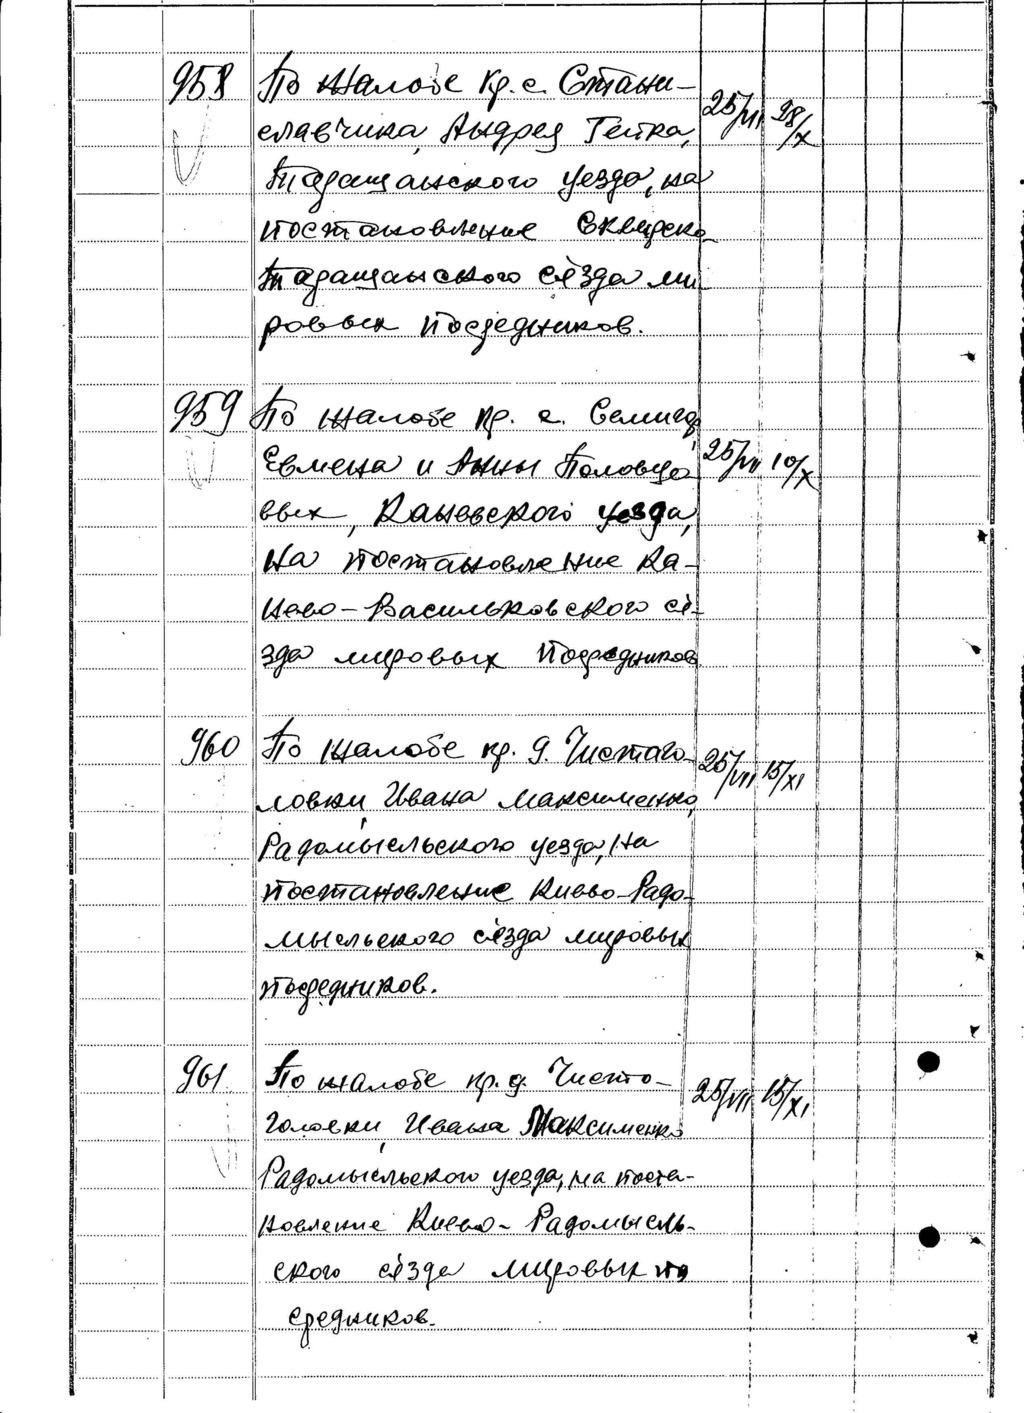 958 По жалобе кр. с. Стани-
славчика, Андрея Гейка, 25/VII 28/X
Таращанского уезда, на
постановление Сквирско-
Таращанского съезда ми
ровых посредников.
959 По жалобе кр. с.
Евмена и Анны Половцо 25/VII 10/X
вых, Каневского уезда,
на постановление Ка-
нево-Васильковского съ-
зда мировых посредников
960 По жалобе кр. д. Чистаго- 25/VII 15/XI
ловки, Ивана Максименко,
Радомысльского уезда, на
постановление Киево-Радо-
мысльского съезда мировых
посредников.
961 По жалобе кр. д. Чисто- 25/VII 15/XI
головки, Ивана Максименко
Радомысльского уезда, на поста-
новление Киево-Радомысль-
ского съезда мировых по
средников.